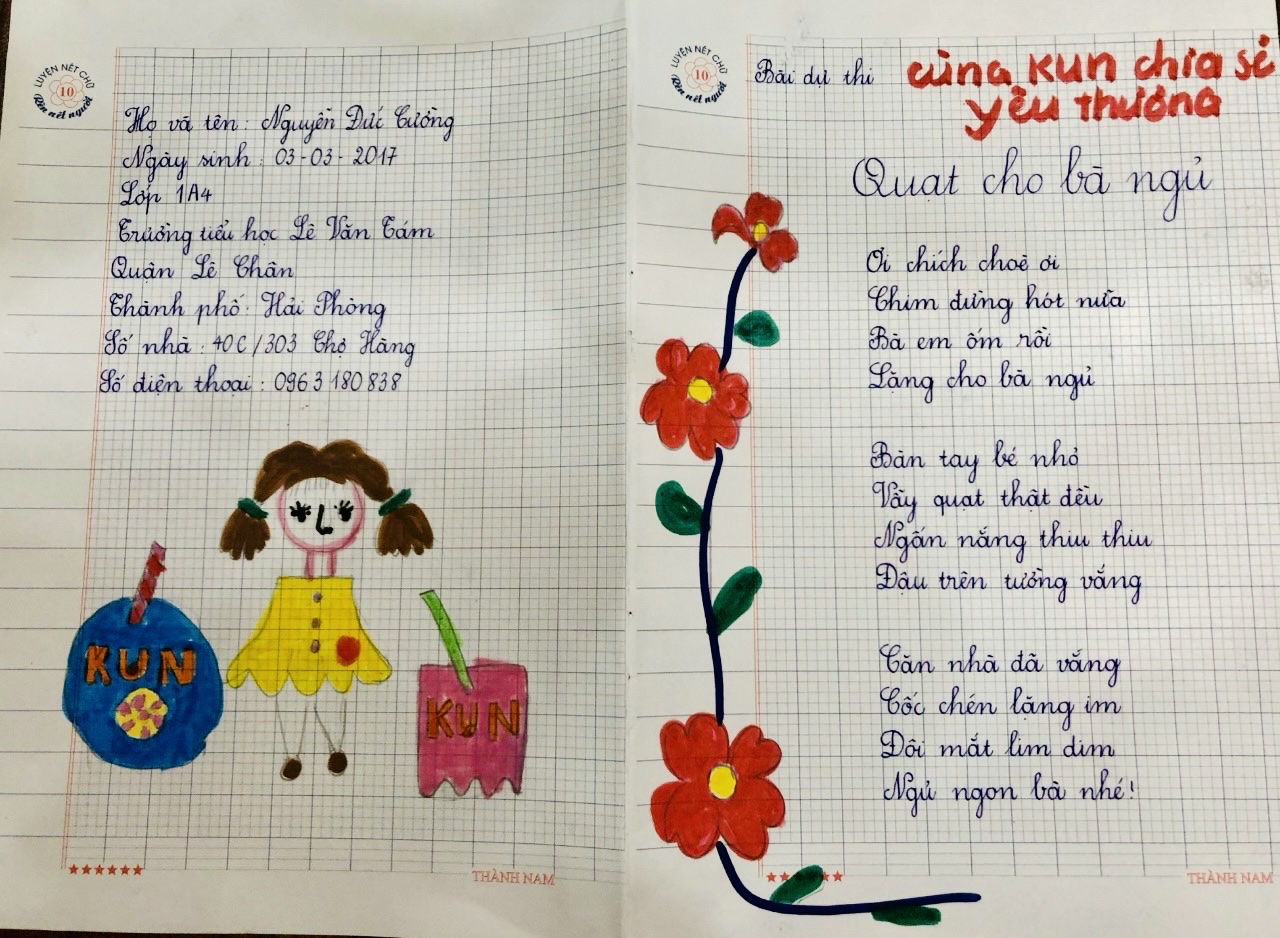 LUYỆN NÉT CHỮ
10
Rèn nết người
Họ và tên : Nguyễn Đức Cường
Ngày sinh : 03-03-2017
Lớp 1A4
Trường tiểu học Lê Văn Tám
Quận Lê Chân
Thành phố : Hải Phòng
Số nhà : 40C/303 Chợ Hàng
Số điện thoại : 0963180838
KUN
KUN
THÀNH NAM
LUYỆN NÉT CHỮ
10
Rèn nết người
Bài dự thi cùng KUN chia sẻ
yêu thương
Quạt cho bà ngủ
Ơi chích choè ơi
Chim đừng hót nữa
Bà em ốm rồi
Lặng cho bà ngủ
Bàn tay bé nhỏ
Vẫy quạt thật đều
Ngấn nắng thiu thiu
Đậu trên tường vắng
Căn nhà đã vắng
Cốc chén lặng im
Đôi mắt lim dim
Ngủ ngon bà nhé!
THÀNH NAM